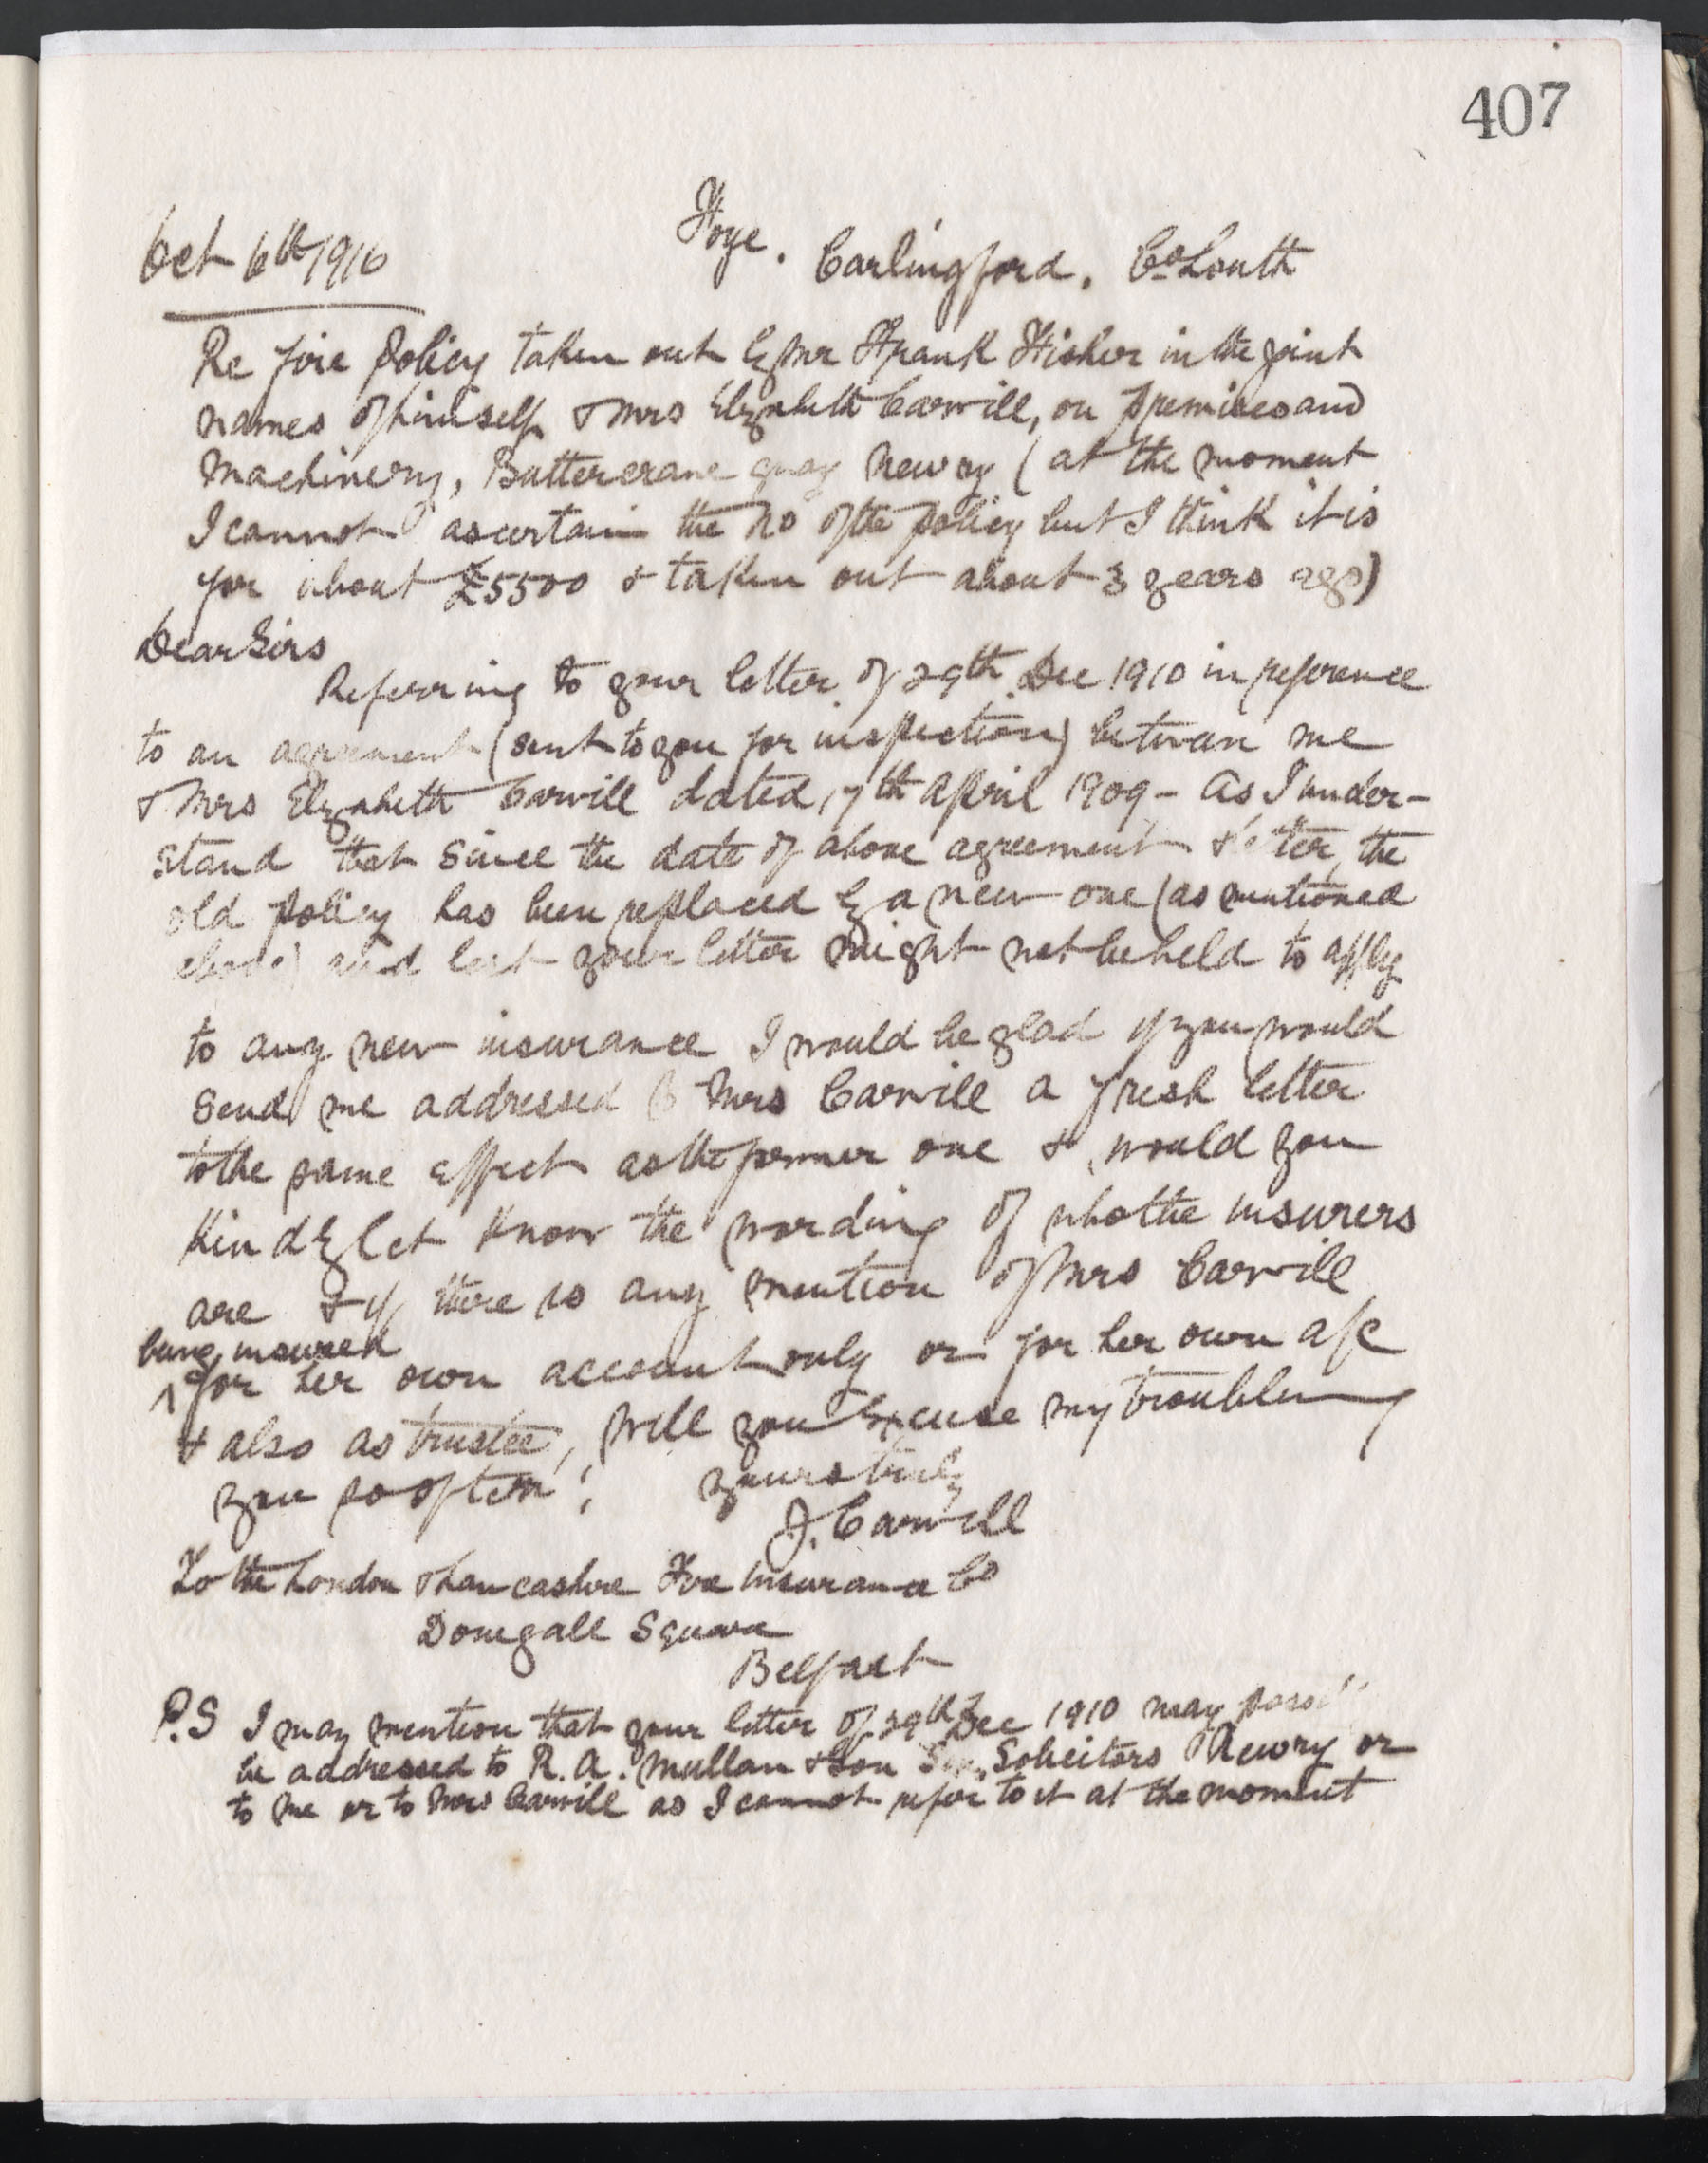 407
Oct 6th 1916
Foye. Carlingford. Co Louth
Re fire policy taken out by Mr Frank Fisher in the joint
names of himself & Mrs Elizabeth Carvill, on premises and
Machinery, Buttercrane quay Newry (at the moment
I cannot ascertain the No of the policy but I think it is
for about £5500 & taken out about 3 years ago)
Dear Sirs
Referring to your letter of 29th Dec 1910 in reference
to an agreement (sent to you for inspection) between me
& Mrs Elizabeth Carvill dated 17th April 1909 - As I under-
stand that since the date of above agreement & letter, the
old policy has been replaced by a new one (as mentioned
above) and lest your letter might not be held to apply
to any new insurance I would be glad if you would
send me addressed to Mrs Carvill a fresh letter
to the same effect as the former one & would you
Kindly let know the wording of who the insurers
are & if there is any mention of Mrs Carvill
being insured
for her own account only or for her own a/c
& also as trustee, Will you excuse my troubling
you so often!
yours truly
J. Carvill
To the London & Lancashire Fire Insurance Co
Donegall Square
Belfast
P.S I may mention that your letter of 29th Dec 1910 may
be addressed to R. A. Mullan & Son Solicitors Newry or
to me or to Mrs Carvill as I cannot refer to it at the moment